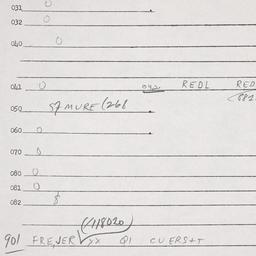 031 0
032 0
040 0
041 0 042 REDL RED
050 57 MURE (268
060 0
070 0
080 0
081 0
082
(118020)
901 FRE, JER XX Q1 CUERS+T